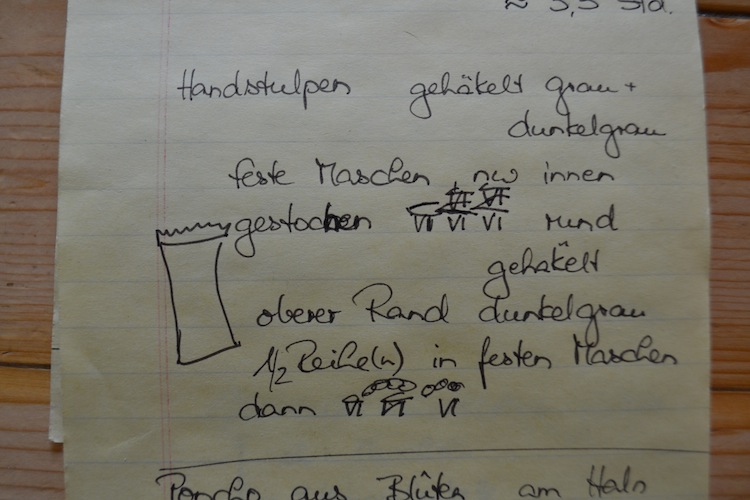 ≈ 3,5 Std.
Handstulpen gehäkelt grau +
dunkelgrau
feste Maschen, nur innen
gestochen VI VI VI rund
gehäkelt
oberer Rand dunkelgrau
1/2 Reihe(n) in festen Maschen
dann VI VI VI
Poncho aus Blüten am Hals